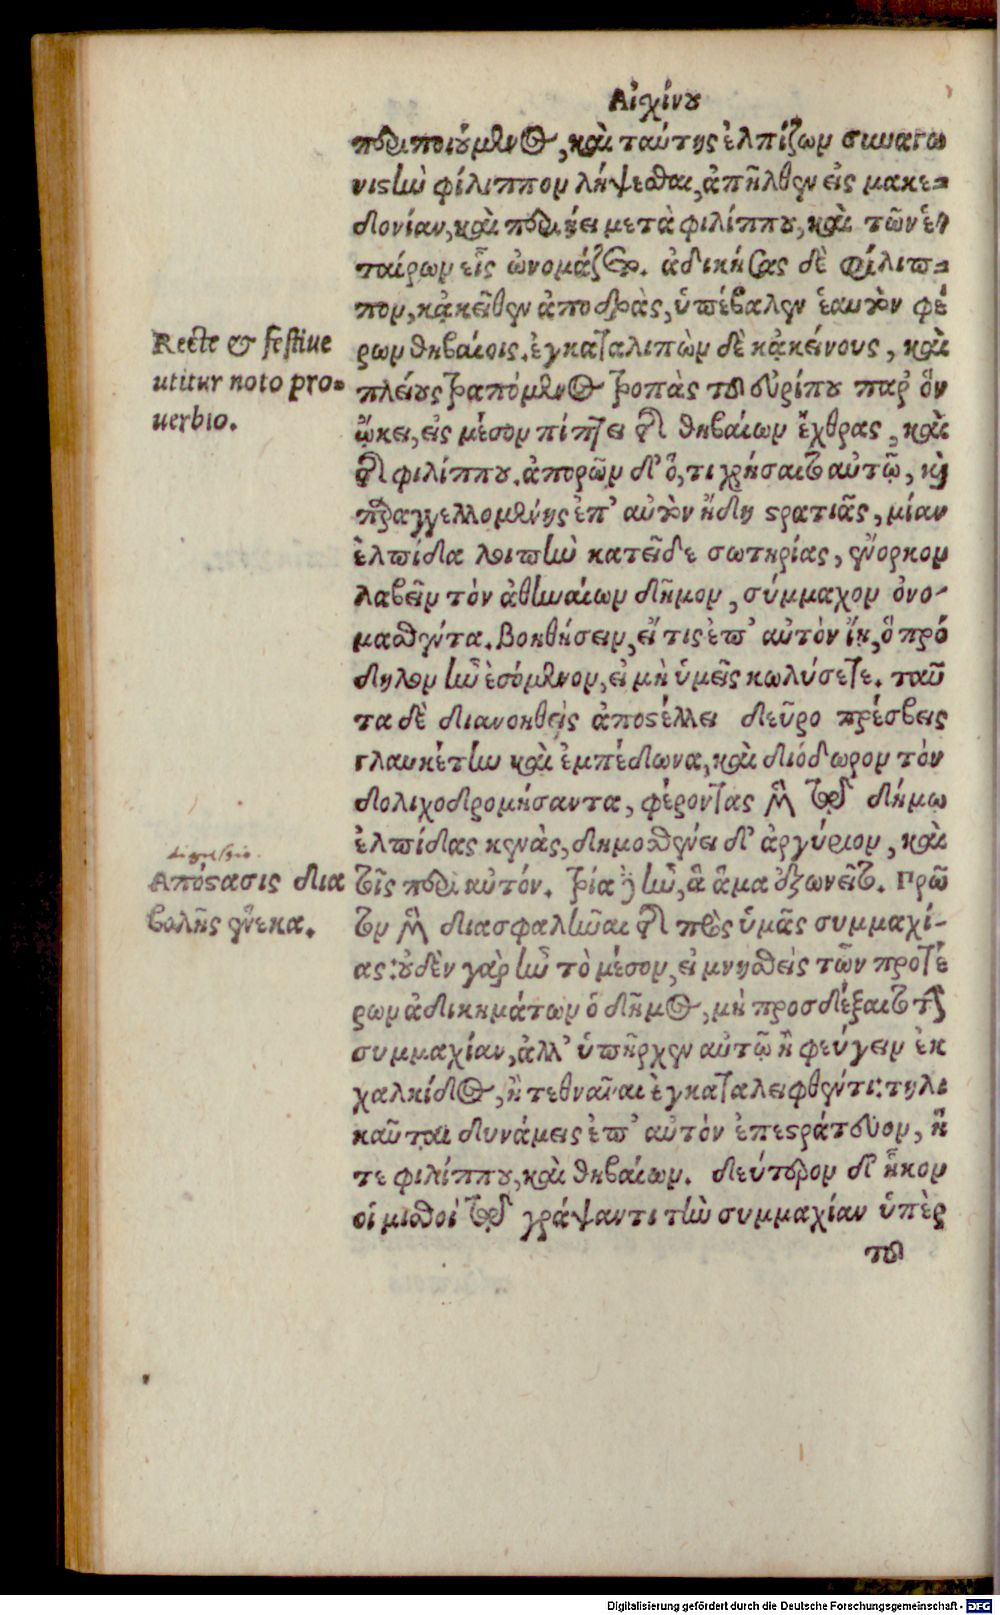 Αἰχίνου
περιποιούμενος, καὶ ταύτης ἐλπίζων συναγω
νιστὴν φίλιππον λήψεσθαι, ἀπῆλθεν εἰς μακε=
δονίαν, καὶ περιήει μετὰ φιλίππου, καὶ τῶν ἑ
ταίρων εἷς ὠνομάζετο. ἀδικήσας δὲ φίλιπ=
πον, κἀκεῖθεν ἀποδρὰς, ὑπέβαλεν ἑαυτὸν φέ
ρων θηβαίοις. ἐγκαταλιπὼν δὲ κἀκείνους, καὶ
πλείους τραπόμενος τροπὰς τοῦ εὐρίπου παρ' ὃν
ᾤκει, εἰς μέσον πίπτει τῆς θηβαίων ἔχθρας, καὶ
τῆς φιλίππου. ἀπορῶν δ' ὅ, τι χρήσαιτο αὑτῷ, καὶ
παραγγελλομένης ἐπ' αὐτὸν ἤδη στρατιᾶς, μίαν
ἐλπίδα λοιπὴν κατεῖδε σωτηρίας, ἔνορκον
λαβεῖν τὸν ἀθηναίων δῆμον, σύμμαχον ὀνο-
μασθέντα. Βοηθήσειν, εἴ τις ἐπ' αὐτὸν ἴῃ, ὃ πρό
δηλον ἦν ἐσόμενον, εἰ μὴ ὑμεῖς κωλύσετε. ταῦ
τα δὲ διανοηθεὶς ἀποστέλλει δεῦρο πρέσβεις
γλαυκέτην καὶ ἐμπέδωνα, καὶ διόδωρον τὸν
δολιχοδρομήσαντα, φέροντας μὲν τῷ δήμῳ
ἐλπίδας κενὰς, δημοσθένει δ' ἀργύριον, καὶ
τοῖς περὶ αὐτόν. τρία δ' ἦν, ἃ ἅμα ἐξωνεῖτο. Πρῶ
τον μὲν διασφαλῆναι τῆς πρὸς ὑμᾶς συμμαχί-
ας: οὐδὲν γὰρ ἦν τὸ μέσον, εἰ μνησθεὶς τῶν προτέ
ρων ἀδικημάτων ὁ δῆμος, μὴ προσδέξαιτο τὴν
συμμαχίαν, ἀλλ' ὑπῆρχεν αὐτῷ ἢ φεύγειν ἐκ
χαλκίδος, ἢ τεθνᾶναι ἐγκαταλειφθέντι: τηλι
καῦται δυνάμεις ἐπ' αὐτὸν ἐπεστράτευον, ἥ
τε φιλίππου, καὶ θηβαίων. δεύτερον δ' ἧκον
οἱ μισθοὶ τῷ γράψαντι τὴν συμμαχίαν ὑπὲρ
τοῦ
Recte & festiue
utitur noto pro=
uerbio.
Ἀπόστασις δια
βολῆς ἕνεκα.
Digitalisierung gefördert durch die Deutsche Forschungsgemeinschaft - DFG